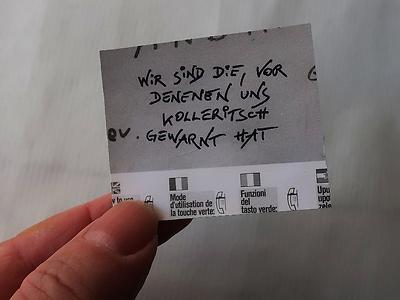 WIR SIND DIE, VOR
DENENEN UNS
KOLLERITSCH
GEWARNT HAT
Mode
d'utilisation de
la touche verte:
Funzioni
del
tasto verde: